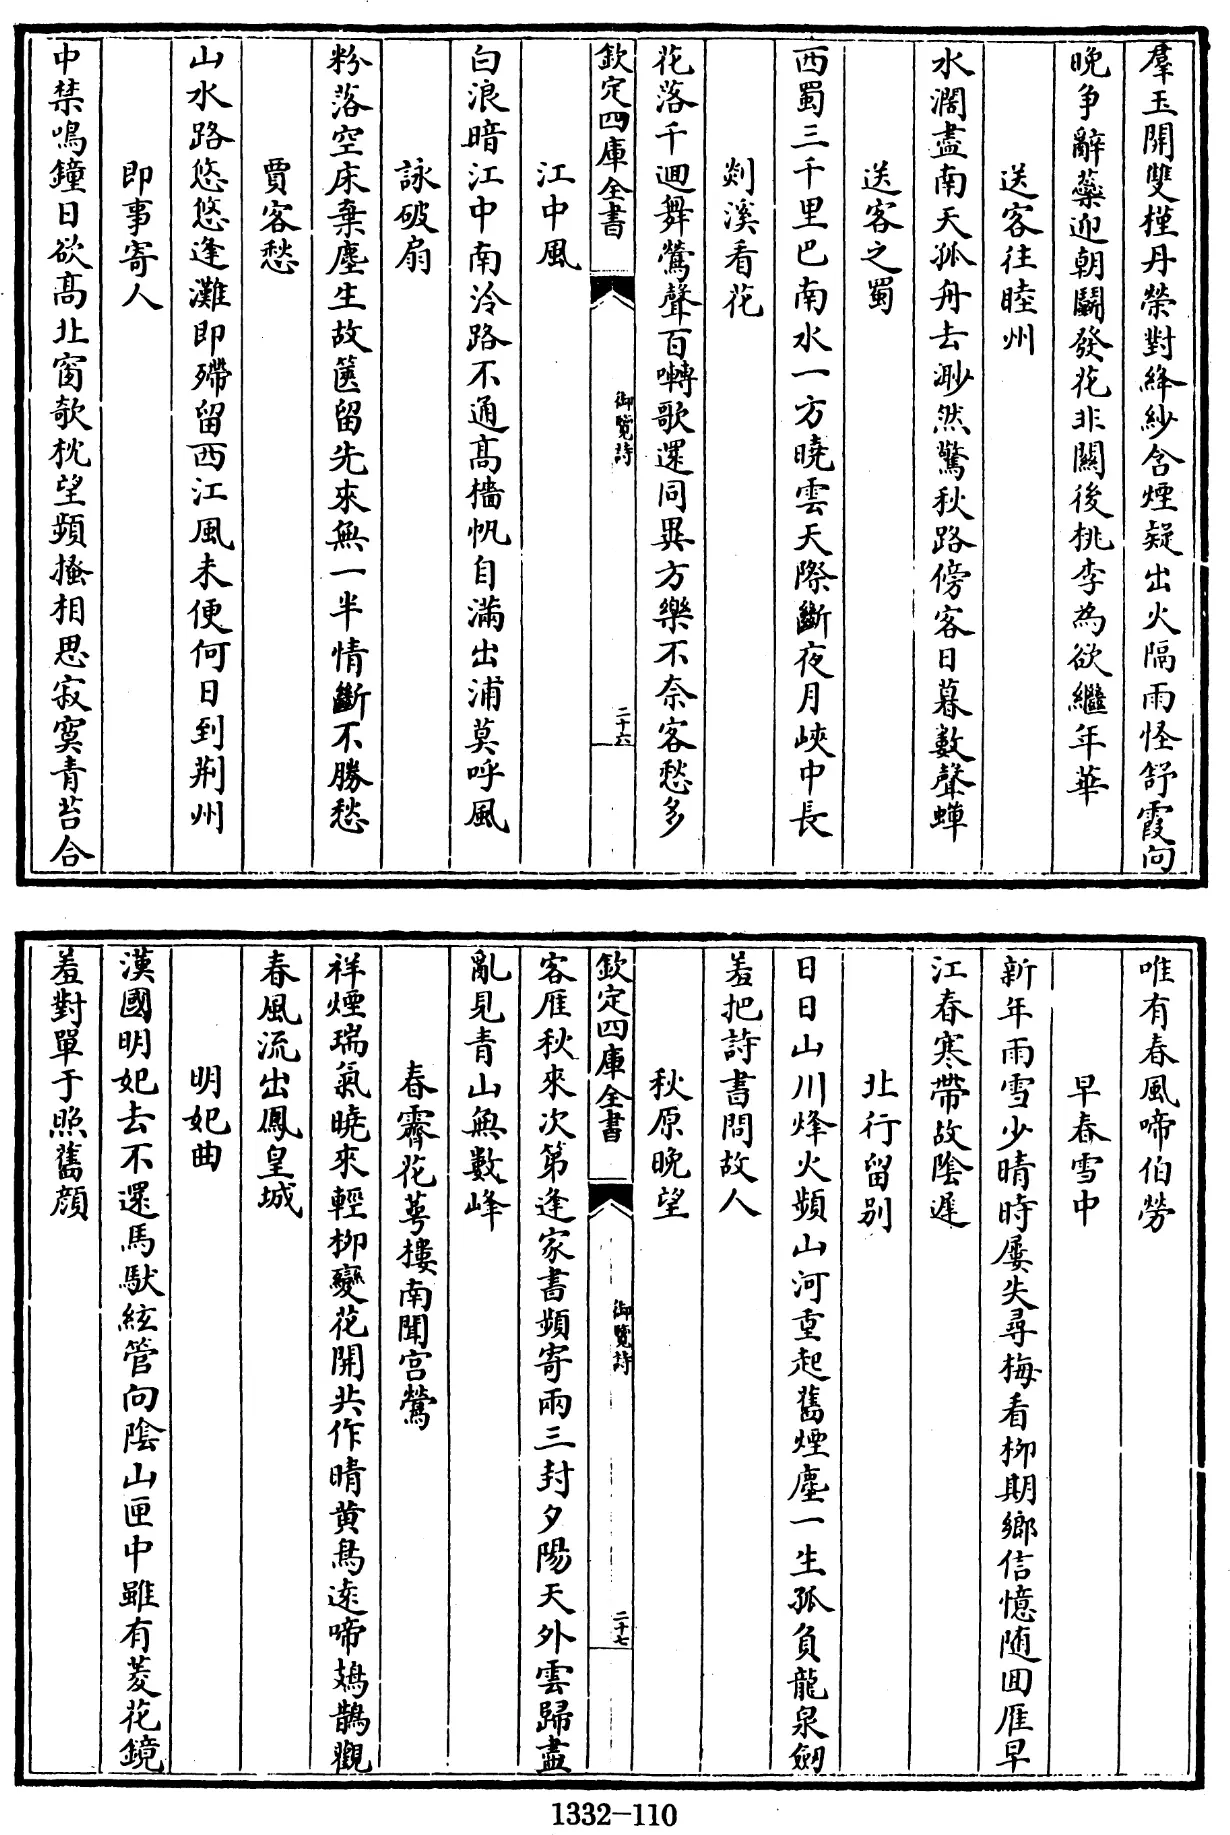 羣玉開雙槿丹榮對絳紗含煙疑出火隔雨怪舒霞向
晚爭辭蘂迎朝鬬發花非關後桃李為欲繼年華
送客往睦州
水濶盡南天孤舟去渺然驚秋路傍客日暮數聲蟬
送客之蜀
西蜀三千里巴南水一方曉雲天際斷夜月峽中長
剡溪看花
花落千迴舞鶯聲百囀歌還同異方樂不奈客愁多
欽定四庫全書
御覽詩
二十六
江中風
白浪暗江中南泠路不通高檣帆自滿出浦莫呼風
詠破扇
粉落空床棄塵生故篋留先來無一半情斷不勝愁
賈客愁
山水路悠悠逢灘即殢留西江風未便何日到荆州
即事寄人
中禁鳴鐘日欲高北窗欹枕望頻搔相思寂寞青苔合
唯有春風啼伯勞
早春雪中
新年雨雪少晴時屢失尋梅看柳期鄉信憶隨囬雁早
江春寒帶故陰遲
北行留別
日日山川烽火頻山河重起舊煙塵一生孤負龍泉劒
羞把詩書問故人
秋原晚望
欽定四庫全書
御覽詩
二十七
客雁秋來次第逢家書頻寄兩三封夕陽天外雲歸盡
亂見青山無數峰
春霽花萼樓南聞宫鶯
祥煙瑞氣曉來輕柳變花開共作晴黄鳥遠啼鳷鵲觀
春風流出鳳皇城
明妃曲
漢國明妃去不還馬馱絃管向陰山匣中雖有菱花鏡
羞對單于照舊顔
1332-110